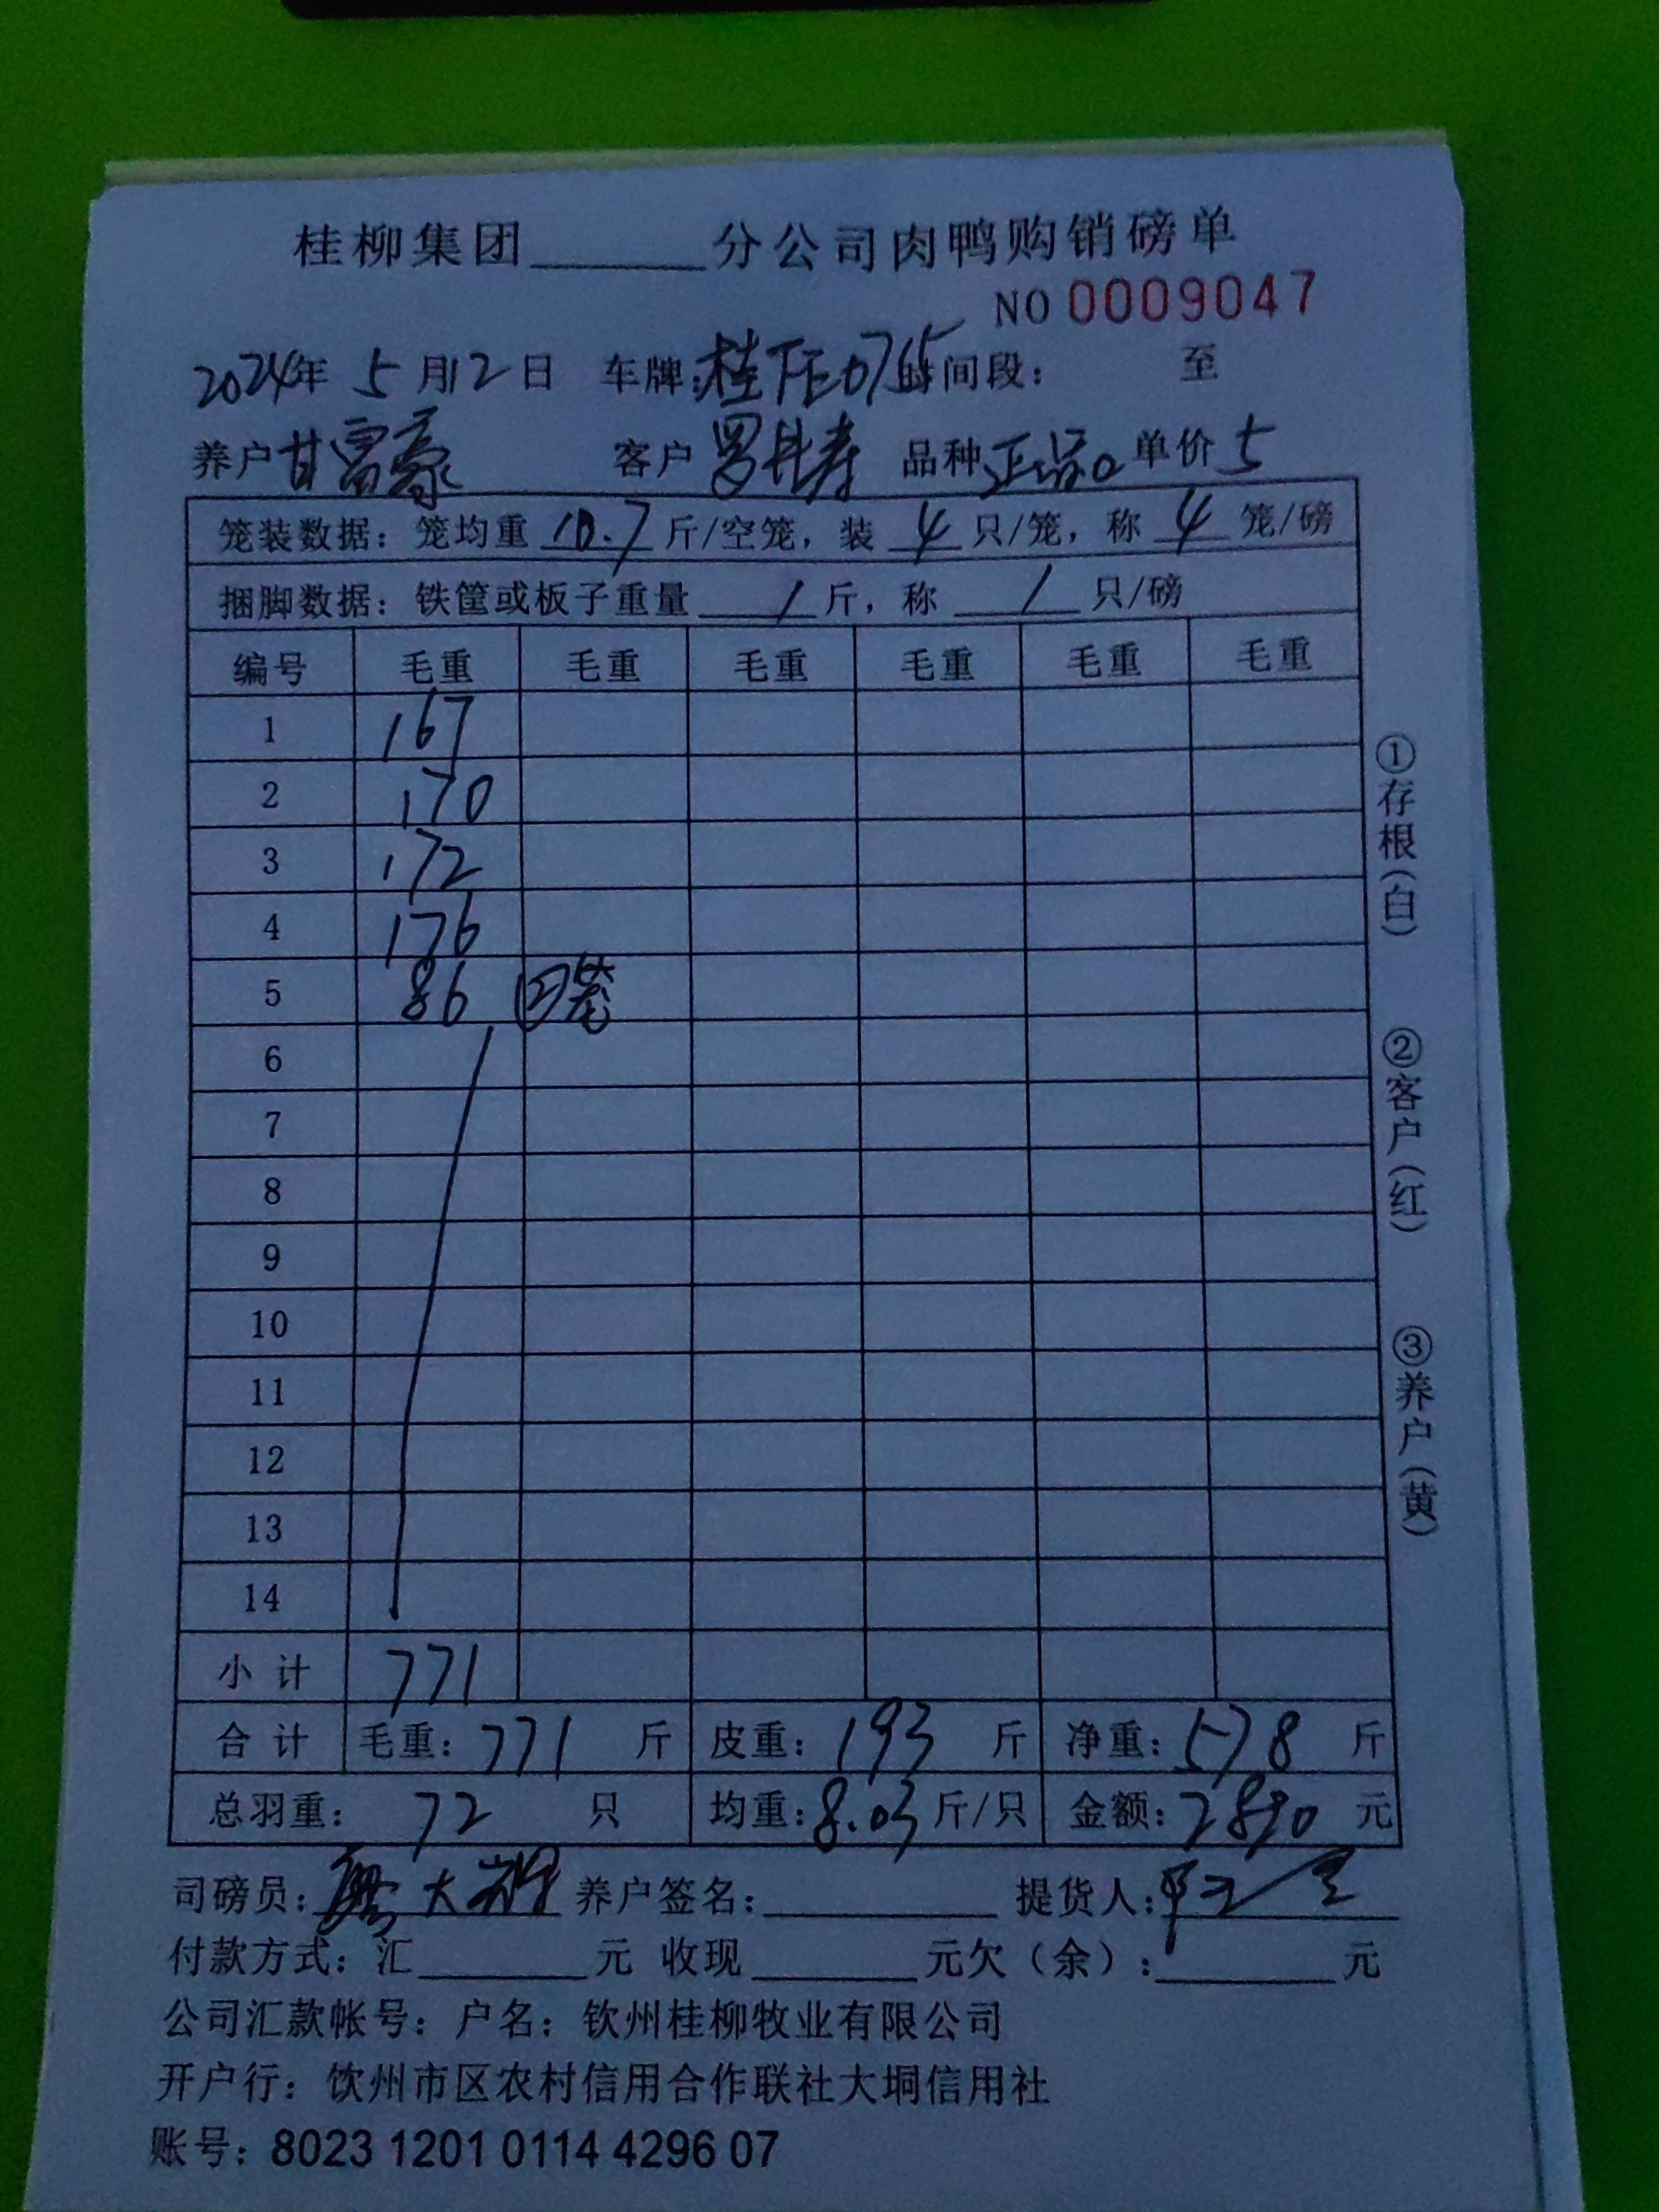 桂柳集团______分公司肉鸭购销磅单
NO 0009047
2024年 5月12日 车牌:桂 0765 时间段: 至
养户 甘富豪 客户 罗 寿 品种 正品 单价 5
笼装数据:笼均重 10.7 斤/空笼,装 4 只/笼,称 4 笼/磅
捆脚数据:铁筐或板子重量 / 斤,称 / 只/磅
编号 毛重 毛重 毛重 毛重 毛重 毛重
1 167
2 170
3 172
4 176
5 86
6
7
8
9
10
11
12
13
14
小计 771
合计 毛重:771 斤 皮重:193 斤 净重:578 斤
总羽重: 72 只 均重:8.03 斤/只 金额:2890 元
司磅员: 大 养户签名:______ 提货人:
付款方式:汇______元 收现______元欠(余):______元
公司汇款帐号:户名:钦州桂柳牧业有限公司
开户行:饮州市区农村信用合作联社大垌信用社
账号:8023 1201 0114 4296 07
①存根(白)
②客户(红)
③养户(黄)